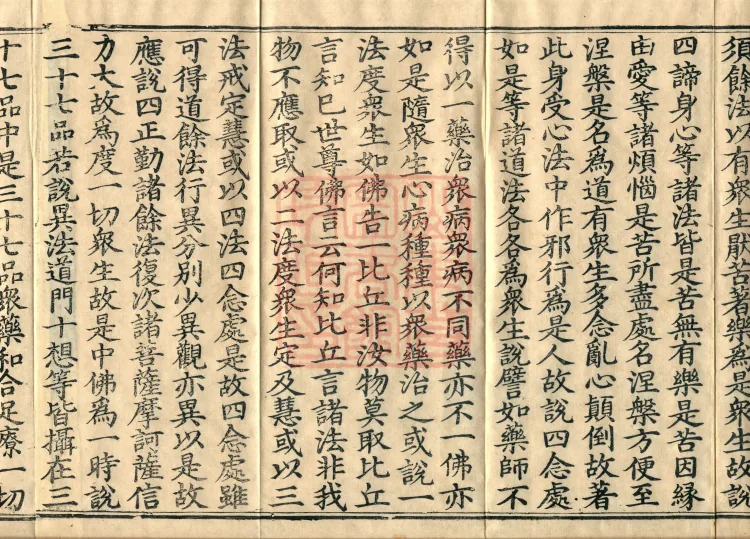 須餘法以有衆生猒苦著樂爲是衆生故說
四諦身心等諸法皆是苦無有樂是苦因緣
由愛等諸煩惱是苦所盡處名涅槃方便至
涅槃是名爲道有衆生多念亂心顛倒故著
此身受心法中作邪行爲是人故說四念處
如是等諸道法各各爲衆生說譬如藥師不
得以一藥治衆病衆病不同藥亦不一佛亦
如是隨衆生心病種種以衆藥治之或說一
法度衆生如佛告一比丘非汝物莫取比丘
言知已世尊佛言云何知比丘言諸法非我
物不應取或以二法度衆生定及慧或以三
法戒定慧或以四法四念處是故四念處雖
可得道餘法行異分別少異觀亦異以是故
應說四正勤諸餘法復次諸菩薩摩訶薩信
力大故爲度一切衆生故是中佛爲一時說
三十七品若說異法道門十想等皆攝在三
十七品中是三十七品衆藥和合足療一切